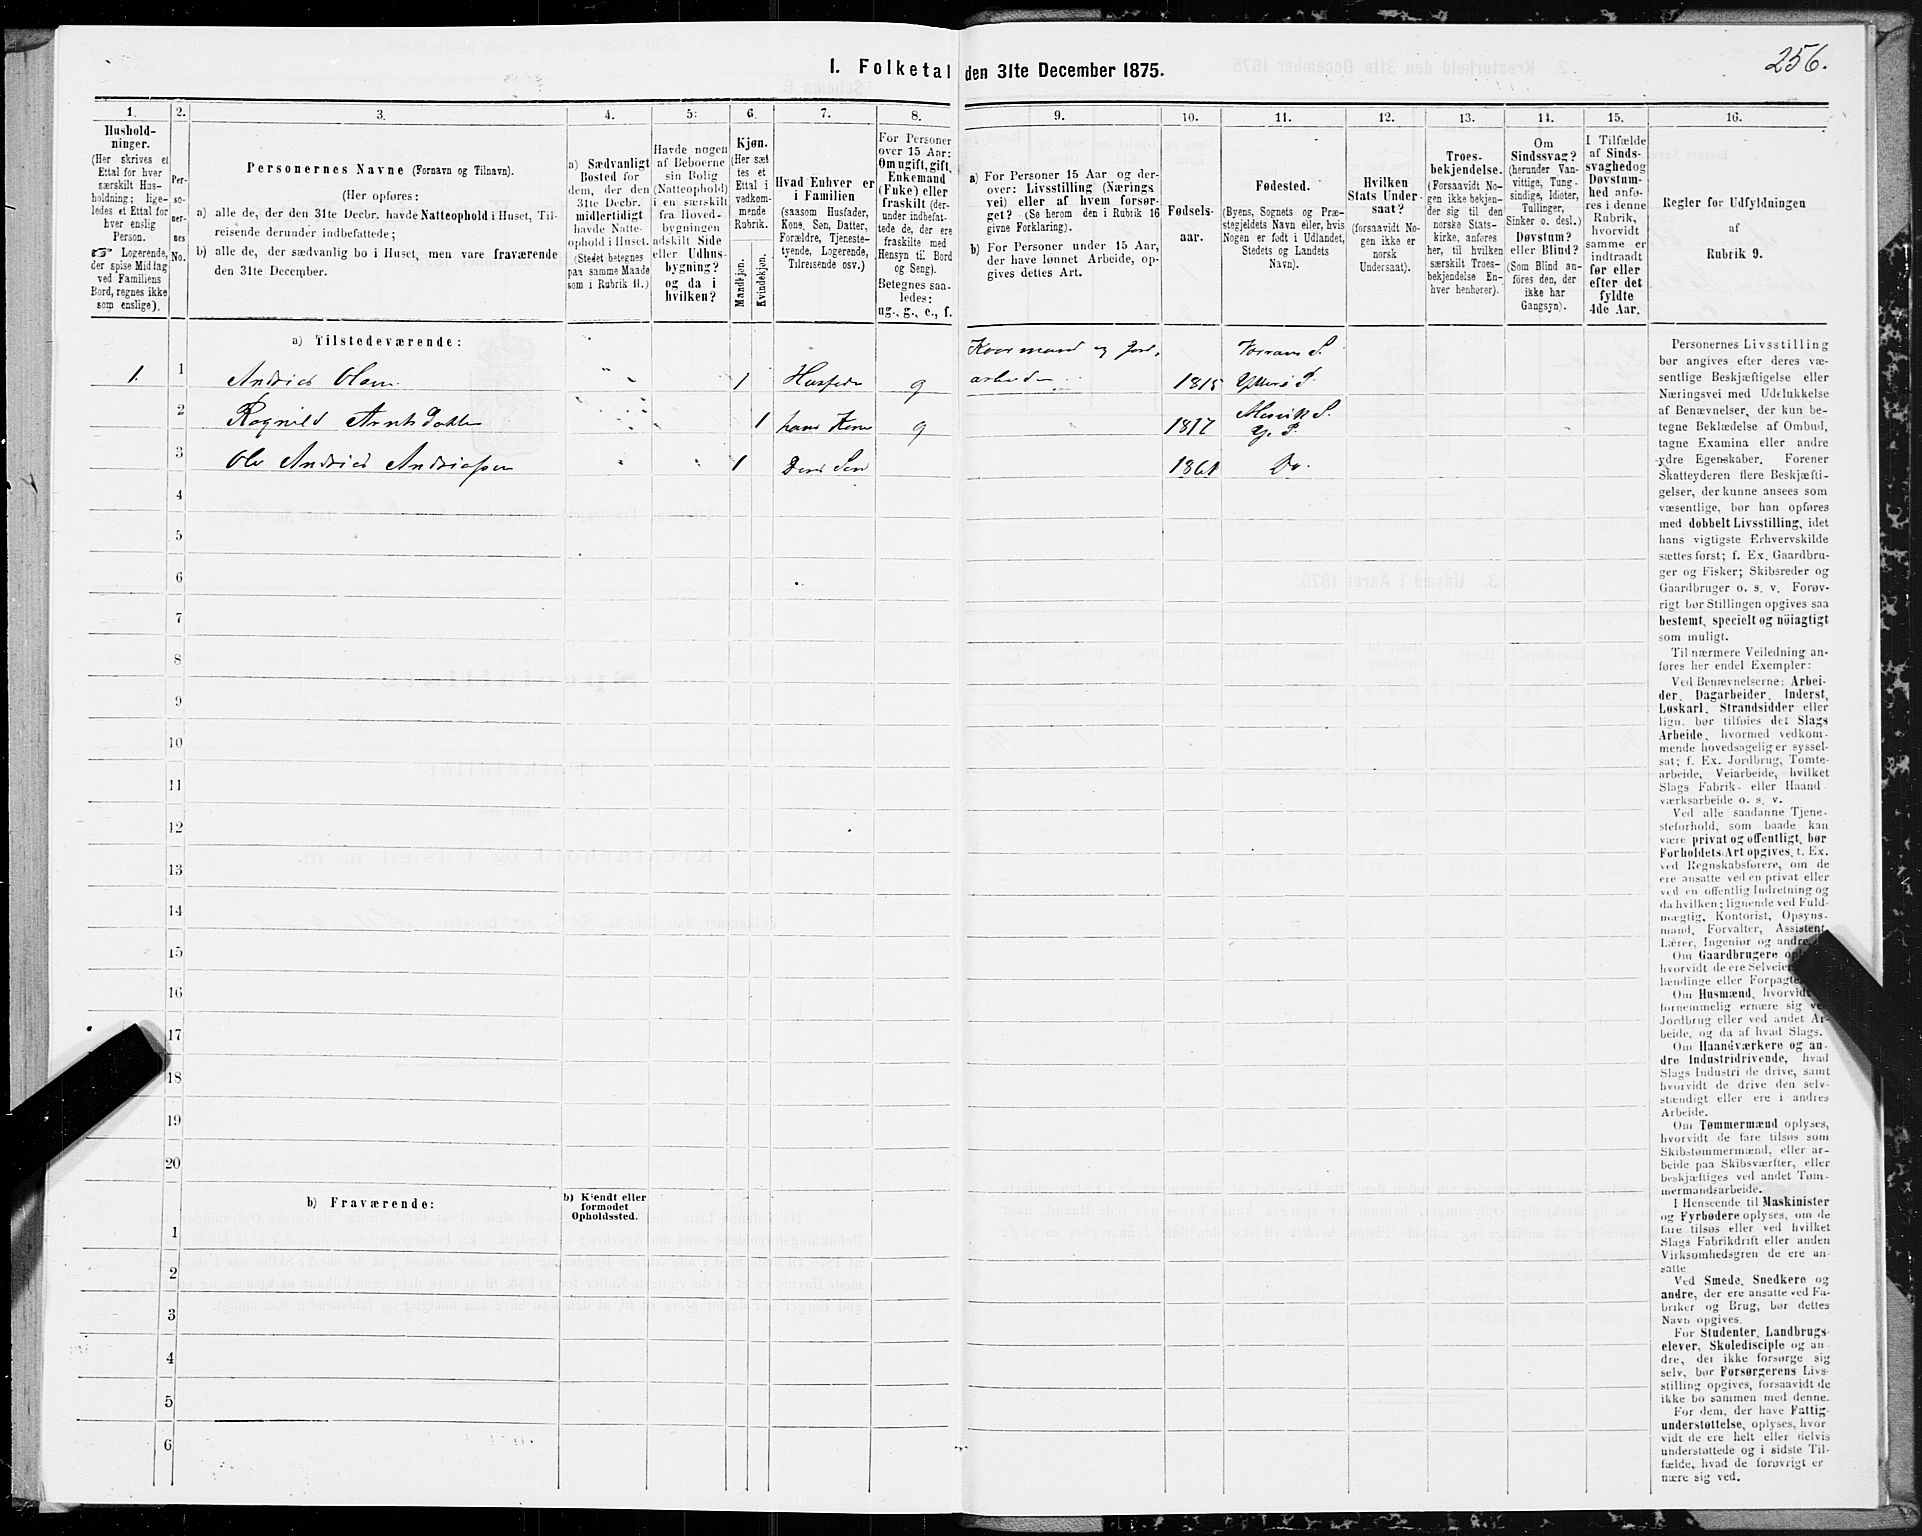 256.
I. Folketal den 31te December 1875.
1. 2. 3. 4. 5. 6. 7. 8. 9. 10. 11. 12. 13. 14. 15. 16.
Hushold-
ninger.
(Her skrives et
Ettal for hver
særskilt Hus-
holdning; lige-
ledes et Ettal for
hver enslig
Person.
☞ Logerende,
der spise Middag
ved Familiens
Bord, regnes ikke
som enslige).
Per-
so-
ner-
nes
No.
Personernes Navne (Fornavn og Tilnavn).
(Her opføres:
a) alle de, der den 31te Decbr. havde Natteophold i Huset, Til-
reisende derunder indbefattede;
b) alle de, der sædvanlig bo i Huset, men vare fraværende
den 31te December.
a) Sædvanligt
Bosted for
dem, der den
31te Decbr.
midlertidigt
havde Natte-
ophold i Huset.
(Stedet betegnes
paa samme Maade
som i Rubrik 11.)
Havde nogen
af Beboerne
sin Bolig
(Natteophold)
i en særskilt
fra Hoved-
bygningen
adskilt Side
eller Udhus-
bygning?
og da i
hvilken?
Kjøn.
(Her sæt
tes et
Ettal i
vedkom-
mende
Rubrik.
Mandkjøn.
Kvindekjøn.
Hvad Enhver er
i Familien
(saasom Husfader,
Kone, Søn, Datter,
Forældre, Tjeneste-
tyende, Logerende,
Tilreisende osv.)
For Personer
over 15 Aar:
Om ugift, gift,
Enkemand
(Enke) eller
fraskilt (der-
under indbefat-
tede de, der ere
fraskilte med
Hensyn til Bord
og Seng).
Betegnes saa-
ledes:
ug., g., e., f.
a) For Personer 15 Aar og der-
over: Livsstilling (Nærings
vei) eller af hvem forsør-
get? (Se herom den i Rubrik 16
givne Forklaring).
b) For Personer under 15 Aar,
der have lønnet Arbeide, op-
gives dettes Art.
Fødsels-
aar.
Fødested.
(Byens, Sognets og Præ-
stegjeldets Navn eller, hvis
Nogen er født i Udlandet,
Stedets og Landets
Navn).
Hvilken
Stats Under-
saat?
(forsaavidt No-
gen ikke er
norsk
Undersaat).
Troes-
bekjendelse.
(Forsaavidt No-
gen ikke bekjen-
der sig til den
norske Stats-
kirke, anføres
her, til hvilken
særskilt Troes-
bekjendelse En-
hver henhører).
Om
Sindssvag?
(herunder Van-
vittige, Tung-
sindige, Idioter,
Tullinger,
Sinker o. desl.)
Døvstum?
eller Blind?
(Som Blind an-
føres den, der
ikke har
Gangsyn).
I Tilfælde
af Sinds-
svaghed og
Døvstum-
hed anfø-
res i denne
Rubrik,
hvorvidt
samme er
indtraadt
før eller
efter det
fyldte
4de Aar.
Regler for Udfyldningen
af
Rubrik 9.
a) Tilstedeværende:
1. 1 Andrias Olsen 1 Husfader g Kaarmand og Jord.
arbeider 1815 Vorran S. Ytterø P.
2 Ragnild Arntsdatter 1 hans Kone g 1817 Mosvik S.
Y. P.
3 Ole Andrias Andriassen 1 Deres Søn 1861 Do.
4
5
6
7
8
9
10
11
12
13
14
15
16
17
18
19
20
b) Fraværende:
b) Kjendt eller
formodet
Opholdssted.
1
2
3
4
5
6
Personernes Livsstilling
bør angives efter deres væ-
sentlige Beskjæftigelse eller
Næringsvei med Udelukkelse
af Benævnelser, der kun be-
tegne Beklædelse af Ombud,
tagne Examina eller andre
ydre Egenskaber. Forener
Skatteyderen flere Beskjæfti-
gelser, der kunne ansees som
væsentlige, bør han opføres
med dobbelt Livsstilling, idet
hans vigtigste Erhvervskilde
sættes først; f. Ex. Gaardbru-
ger og Fisker; Skibsreder og
Gaardbruger o. s. v. Forøv-
rigt bør Stillingen opgives saa
bestemt, specielt og nöiagtigt
som muligt.
Til nærmere Veiledning an-
føres her endel Exempler:
Ved Benævnelserne: Arbei-
der, Dagarbeider, Inderst,
Løskarl, Strandsidder eller
lign. bør tilføies det Slags
Arbeide, hvormed vedkom-
mende hovedsagelig er syssel-
sat; f. Ex. Jordbrug, Tomte-
arbeide, Veiarbeide, hvilket
Slags Fabrik- eller Haand
værksarbeide o. s. v.
Ved alle saadanne Tjene-
steforhold, som baade kan
være privat og offentligt, bør
Forholdets Art opgives, t. Ex.
ved Regnskabsførere, om de
ere ansatte ved en privat eller
ved en offentlig Indretning og
da hvilken; lignende ved Fuld-
mægtig, Kontorist, Opsyns-
mand, Forvalter, Assistent,
Lærer, Ingeniør og andre.
Om Gaardbrugere
hvorvidt de ere Selveier
lændinge eller Forpagte
Om Husmænd, hvorvidt
fornemmelig ernære sig
Jordbrug eller ved andet Ar-
beide, og da af hvad Slags.
Om Haandværkere og an-
dre Industridrivende, hvad
Slags Industri de drive, samt
hvorvidt de drive den selv-
stændigt eller ere i andres
Arbeide.
Om Tømmermænd oplyses,
hvorvidt de fare tilsøs som
Skibstømmermænd, eller ar-
beide paa Skibsværfter, eller
beskjæftiges ved andet Tøm-
mermandsarbeide.
I Henseende til Maskinister
og Fyrbødere oplyses, om de
fare tilsøs eller ved hvilket
Slags Fabrikdrift eller anden
Virksomhedsgren de ere an-
satte
Ved Smede, Snedkere og
andre, der ere ansatte ved Fa-
briker og Brug, bør dettes
Navn opgives.
For Studenter, Landbrugs-
elever, Skoledisciple og an-
dre, der ikke forsørge sig
selv, bør Forsørgerens Livs-
stilling opgives, forsaavidt de
ikke bo sammen med denne.
For dem, der have Fattig-
understøttelse, oplyses, hvor-
vidt de ere helt eller delvis
understøttede og i sidste Til-
fælde, hvad de forøvrigt er
nære sig ved.